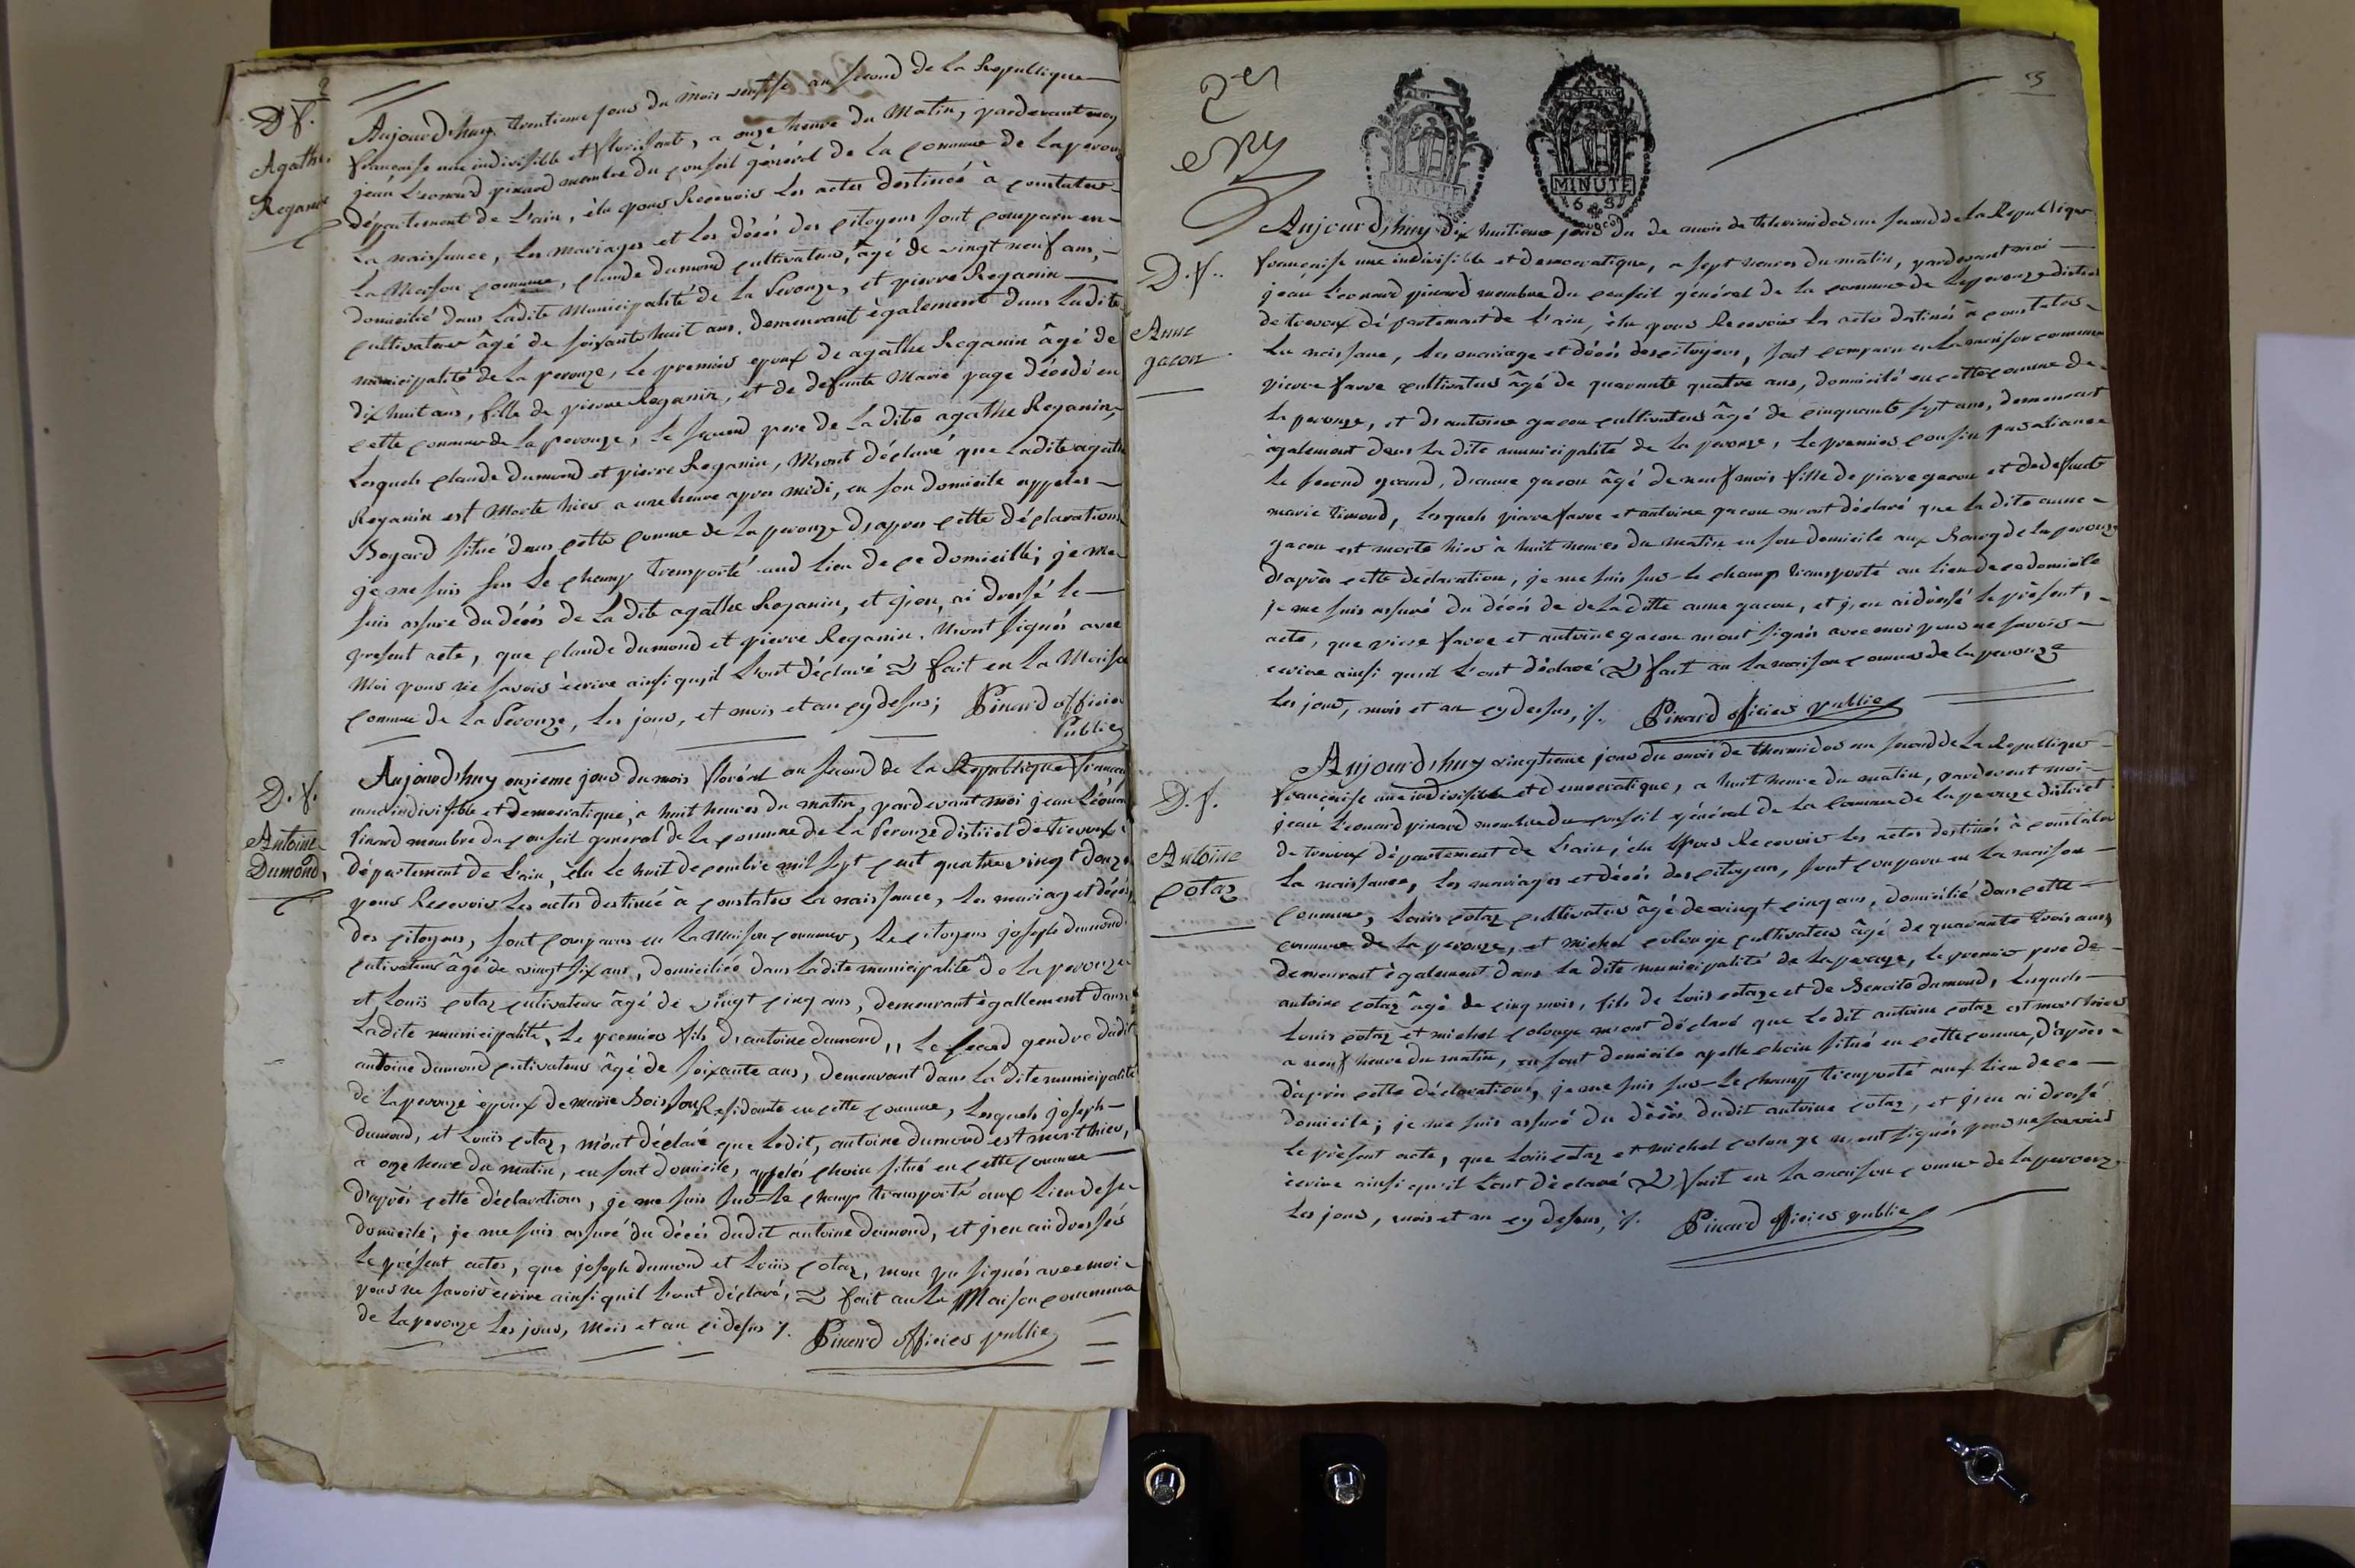 2
D. f.
Agathe
Reganin
Aujourd'huy trentieme jour du mois ventose an second de la Republique
francaise une indivisible et florissante, a onze heure du Matin, pardevant moy
jean Leonard pinard membre du conseil général de la commune de Laperouze
département de L'ain, élu pour Recevoir Les actes destinée à constater
La naissance, Les mariages et Les décés des citoyens sont comparu en
La Maison commune, claude dumond cultivateur, âgé de vingt neuf ans,
domicilié dans Ladite Municipalité de La Perouze, et pierre Reganin
cultivateur âgé de soixante huit ans, demeurant également dans Ladite
municipalité de La perouze, Le premier epoux de agathe Reganin âgé de
dix huit ans, fille de pierre Reganin, et de defunte Marie page décédé en
cette commune de La perouze, Le second pere de La dite agathe Reganin,
Lesquels claude dumond et pierre Reganin, M'ont déclaré que Ladite agathe
Reganin est Morte hier a une heure apres midi, en son domicile appeler
Bogard situé dans cette comune de La perouze d'apres cette déclarations
je me suis sur Le champ transporté aud lieu de ce domicille; je me
suis assuré du décés de La dite agathe Reganin, et j'en, ai dressé le
present acte, que claude dumond et pierre Reganin. N'ont signés avec
Moi pour ne savoir écrire ainsi qu'il L'ont déclaré fait en La Maison
comune de La Perouze, Les jour, et mois et an cy dessus; Pinard officier
Public
D. f.
Antoine
Dumond,
Aujourd'huy onzieme jour du mois floréal an second de La Republique francaise
une indivisible et democratique, a huit heures du matin, pardevant moi jean Léonard
Pinard membre du conseil general de La commune de La Perouze district de trevoux
département de L'ain, élu Le huit decembre mil sept cent quatre vingt douze
pour Recevoir Les actes destinée à constater La naissance, Les mariag et décés,
des citoyens, sont comparus en La Maison commune, Le citoyens joseph dumond
cutivateur âgé de vingt six ans, domiciliée dans Ladite municipalité de La perouze
et Louis cotaz cutivateur âgé de vingt cinq ans, demeurant égallement dans
Ladite municipalité, Le premier fils d'antoine dumond,, Le second gendre dudit
antoine dumond cutivateur âgé de soixante ans, demeurant dans La dite municipalité
de Laperouze epoux de marie Boisson Residante en cette comune, Lesquels joseph
dumond, et Louis cotaz, m'ont déclaré que Ledit, antoine dumond est mort hier,
a onze heure du matin, en sont domicile, appelés choin situé en cette comune
d'après cette déclarations, je me suis sur Le champ transporté aux Lieu de se
domicile; je me suis assuré du décés dudit antoine dumond, et j'en ai dressés
Le présent actes, que joseph dumond et Louis cotaz, mon pu signés avec moi
pour ne savoir écrire ainsi quil L'ont déclaré, fait en La Maison commune
de Laperouze Les jour, mois et an ci desus /. Pinard officier public
2er
MINUTE
MINUTE
D. f.
Anne
gacon
Aujourd'huy dix huitieme jour du de mois de thermidor an second de La Republique
francaise une indivisible et democratique, a sept heures du matin, pardevant moi
jean Léonard pinard membre du conseil général de La commune de Laperouze district
de trevoux département de L'ain, élu pour Recevoir Les actes destinés à constater
La naissane, Les mariage et décés des citoyens, sont comparu en La maison commune
pierre favre cultivateur âgé de quarante quatre ans, domicilié en cette comune de
La perouze, et d'antoine gacon cultivateur âgé de cinquante sept ans, demeurant
également dans La dite municipalité de La perouze, Le premier cousin par aliance
Le second grand, d'anne gacon âgé de neuf mois fille de pierre gacon et de defunte
marie timond, Lesquels pierre favre et antoine gacon m'ont déclaré que La dite anne
gacon est morte hier à huit heures du matin en son domicile aux Bourg de Laperouze
d'après cette déclaration, je me suis sur-Le champ transporté au Lieu de ce domicile
je me suis assuré du décés de de La ditte anne gacon, et j'en ai dréssé Le présent,
acte, que piere favre et antoine gacon m'ont signés avec moi pour ne savoir
ecrire ainsi quil L'ont déclaré fait an La maison comune de Laperouze
Les jour, mois et an cy dessus, /. Pinard officier public
D. f.
Antoine
cotaz
Aujourd'huy vingtieme jour du mois de thermidor an second de La Republique
francaise une indivisible et democratique, a huit heure du matin, pardevent moi
jean Léonard pinard membre du conseil général de La comune de Laperouze district
de trevoux département de L'ain, élu pour Recevoir Les actes destinés à constater
La naissance, Les mariages et décés des citoyens, sont comparu en La maison
comune, Louis cotaz cultivateur âgé de vingt cinq ans, domicilié dans cette
commune de La perouze, et michel colonge cultivateur âgé de quarante trois ans,
demeurant également dans La dite municipalité de Laperouze, Le premier pere de
antoine cotaz âgé de cinq mois, fils de Louis cotaz et de Benoite dumond, Lesquels
Louis cotaz et michel colonge m'ont déclaré que Le dit antoine cotaz est mort hier
a neuf heure du matin, en sont domicile apelle choin situé en cette comune, d'après
d'après cette déclarations, je me suis sur-Le champ transporté aux Lieu de ce
domicile; je me suis assuré du décés dudit antoine cotaz, et j'en ai dressé
Le présent acte, que Louis cotaz et michel colonge n'ont signés pour ne savoir
écrire ainsi qu'il L'ont déclaré fait en La maison comune de Laperouze
Les jour, mois et an cy desus, /. Pinard officier public